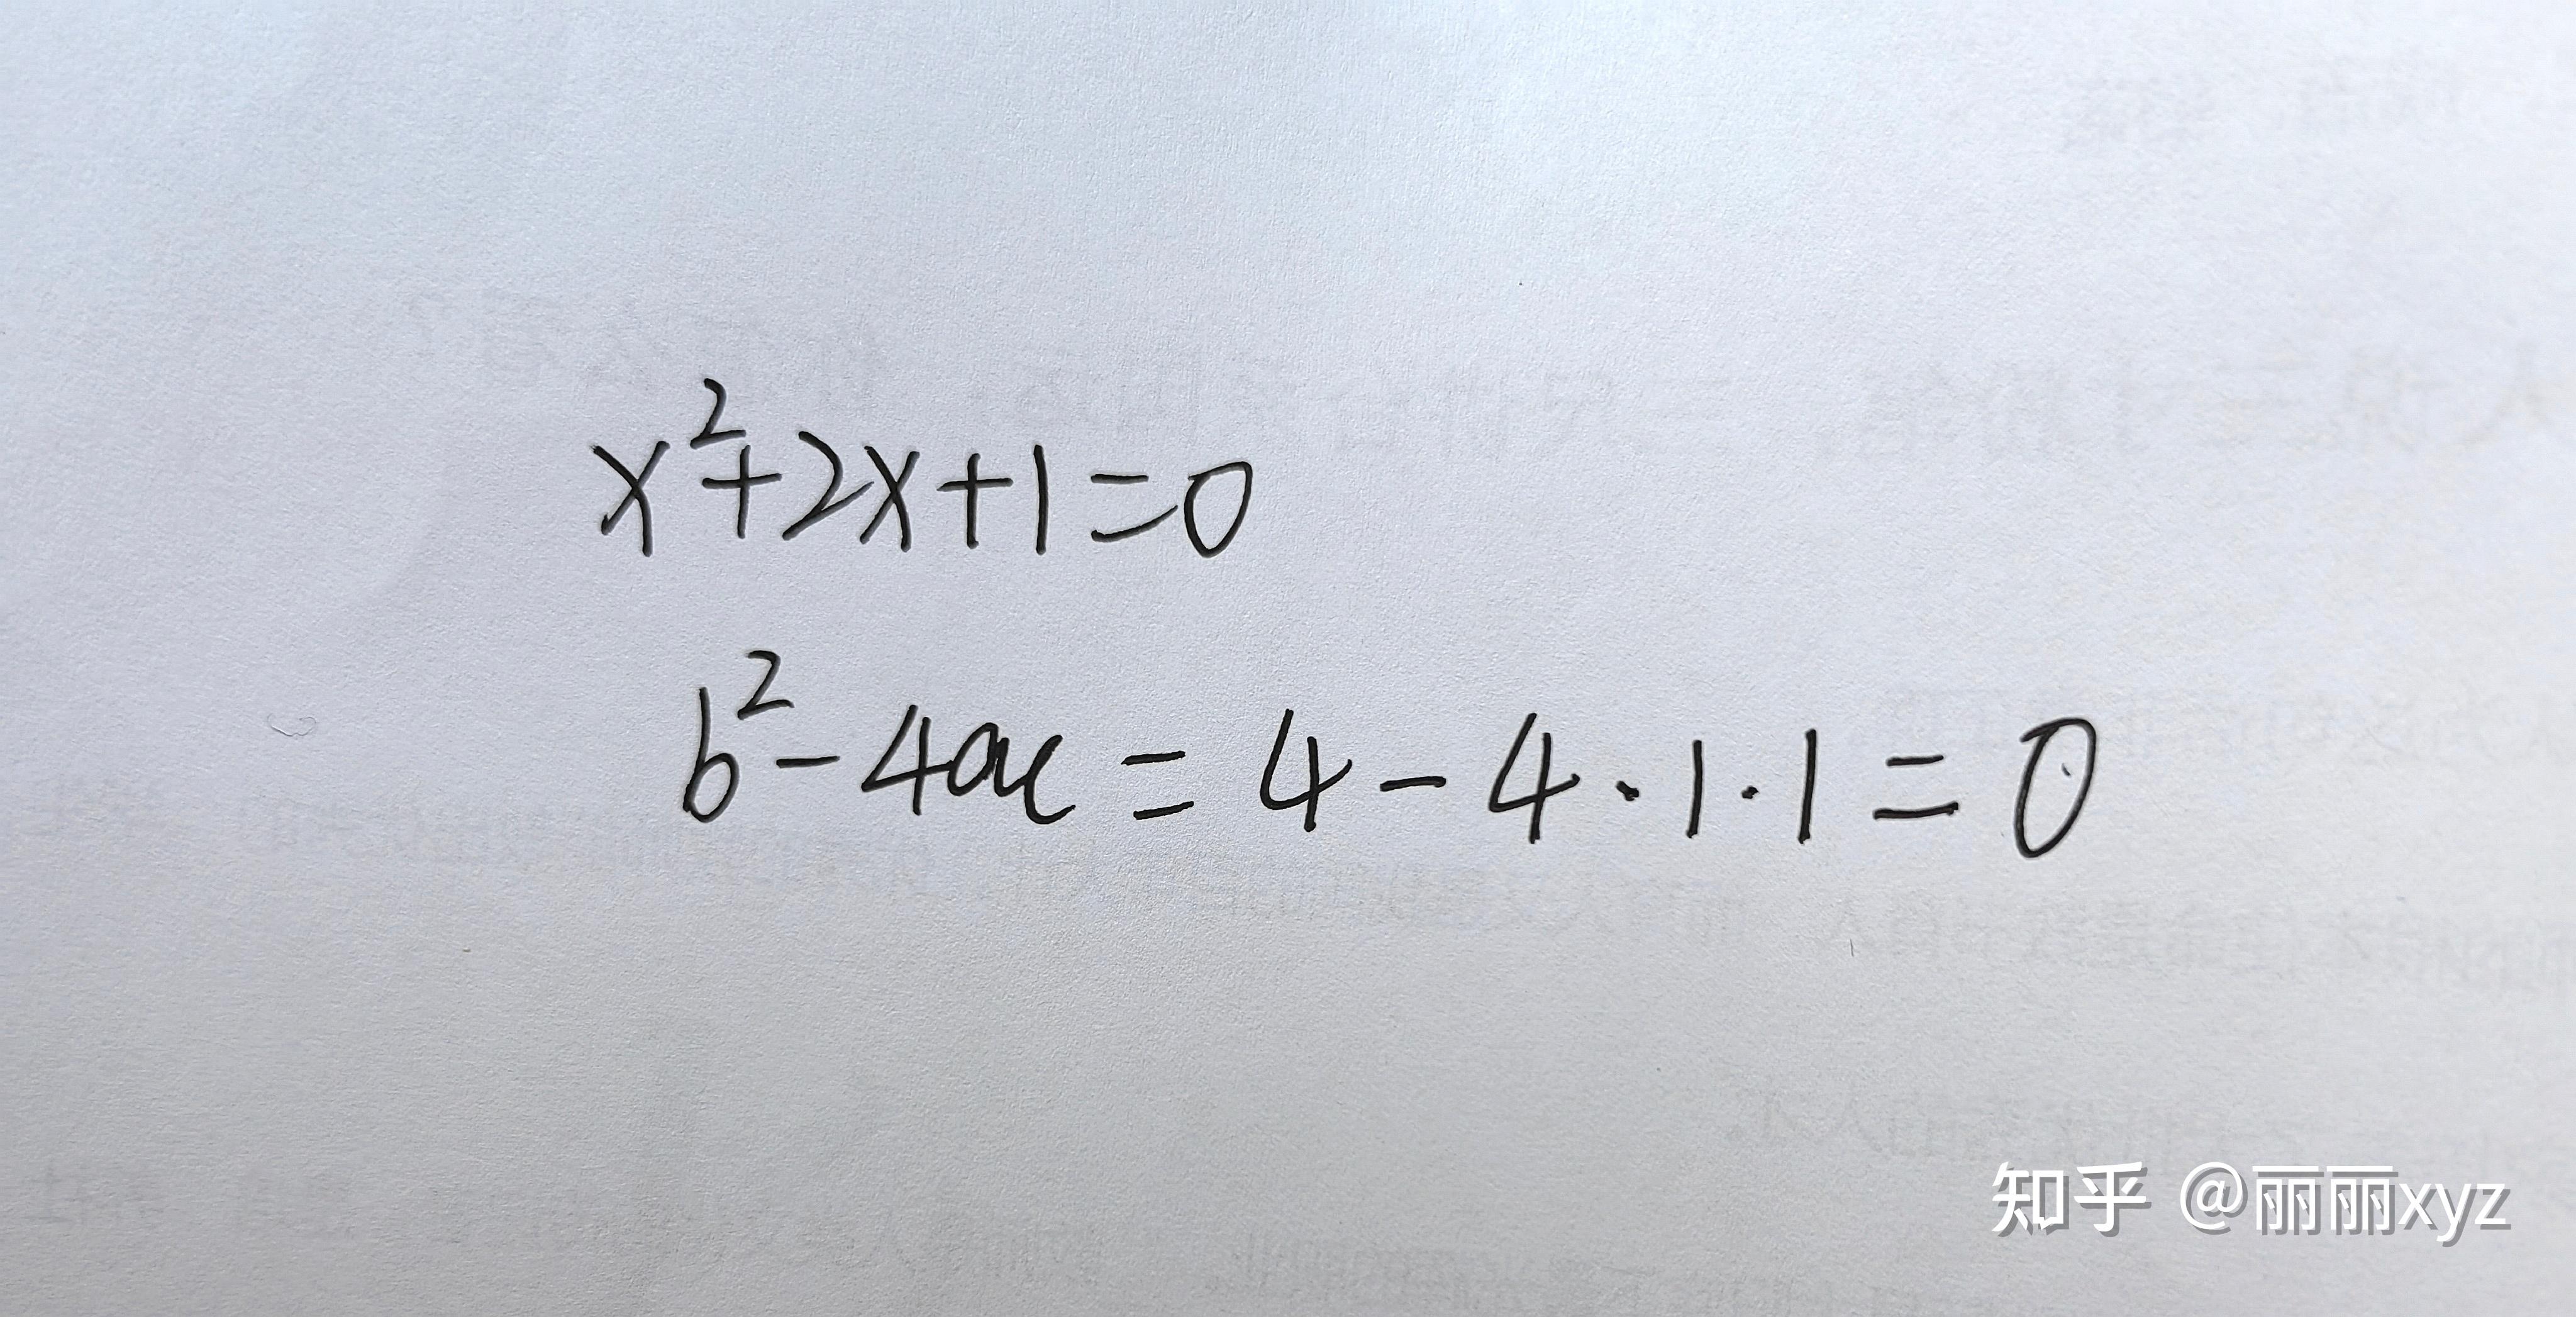 x²+2x+1=0
b²-4ac=4-4·1·1=0
知乎 @丽丽xyz